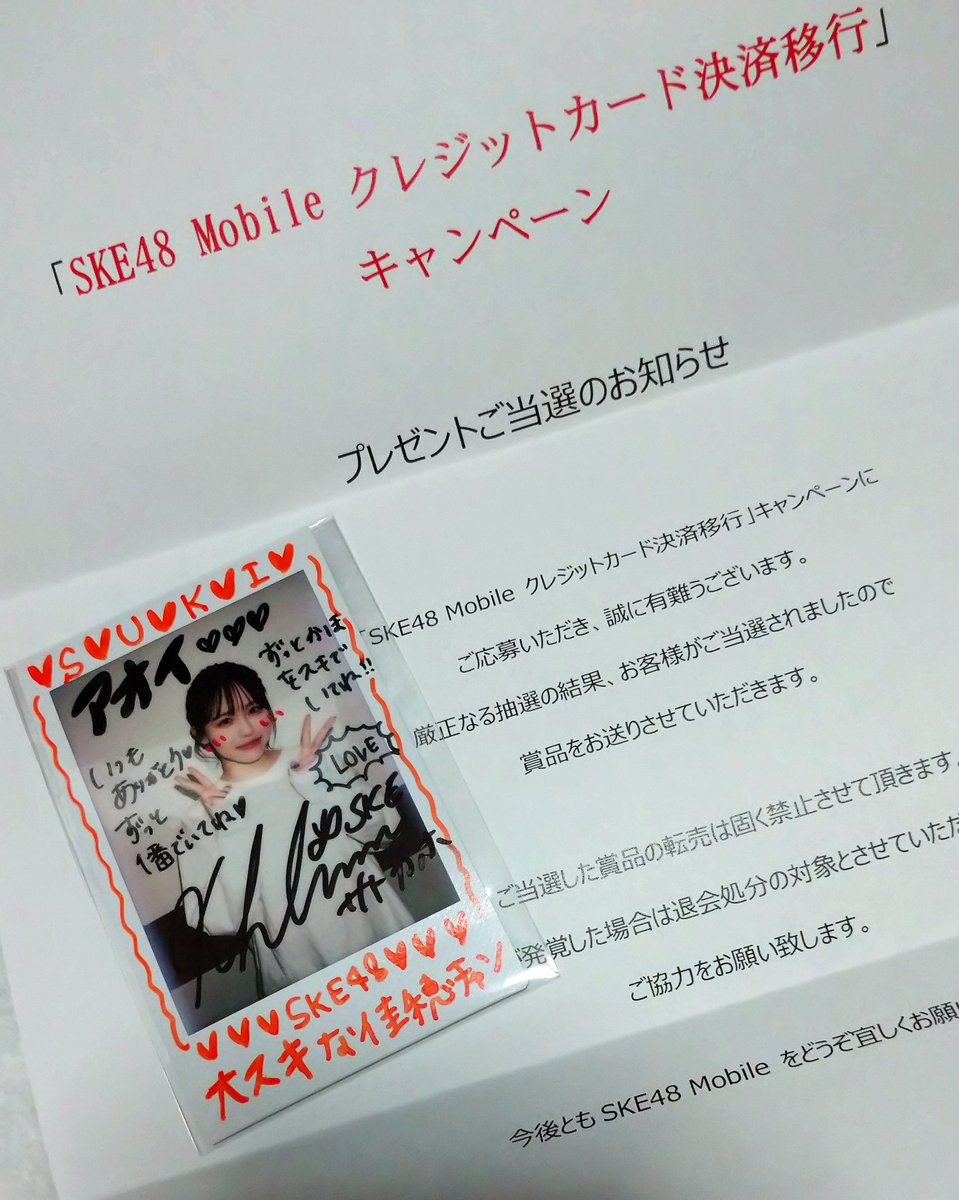 「SKE48 Mobile クレジットカード決済移行」
キャンペーン
プレゼントご当選のお知らせ
「SKE48 Mobile クレジットカード決済移行」キャンペーンに
ご応募いただき、誠に有難うございます。
厳正なる抽選の結果、お客様がご当選されましたので
賞品をお送りさせていただきます。
ご当選した賞品の転売は固く禁止させて頂きます。
発覚した場合は退会処分の対象とさせていただ
ご協力をお願い致します。
今後とも SKE48 Mobile をどうぞ宜しくお願い
♥S♥U♥K♥I♥
アオイ♡♡♡
ずっとかほ
をスキで
いてね!!
いつも
ありがとう♥
ずっと
1番でいてね♥
LOVE
SKE
♥♥♥SKE48♥♥♥
大スキな佳穂チャン